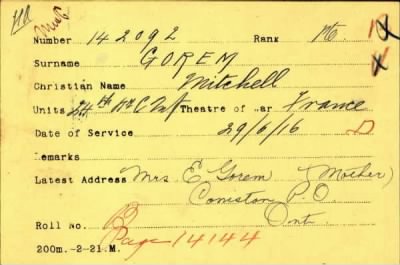 Number 142092 Rank Pte.
Surname GOREM
Christian Name Mitchell
Units Theatre of War France
Date of Service 29/6/16 D
Remarks
Latest Address Mrs E Gorem (Mother)
P.O.
Ont.
Roll No. B Page 14144
200m.-2-21.M.